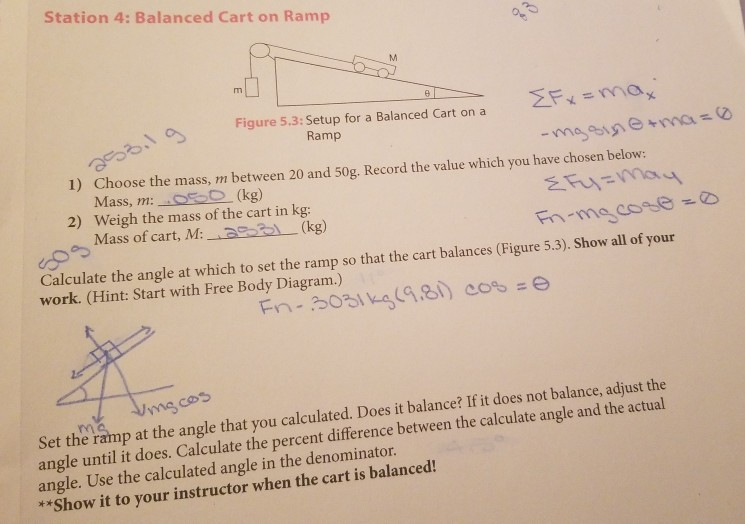 Station 4: Balanced Cart on Ramp
M
m
θ
Figure 5.3: Setup for a Balanced Cart on a
Ramp
ΣFx = max
-mgsinθ+ma=0
253.1 g
1) Choose the mass, m between 20 and 50g. Record the value which you have chosen below:
Mass, m: .050 (kg)
ΣFy=may
2) Weigh the mass of the cart in kg:
Fn-mgcosθ=0
Mass of cart, M: .2531 (kg)
50g
Calculate the angle at which to set the ramp so that the cart balances (Figure 5.3). Show all of your
work. (Hint: Start with Free Body Diagram.)
Fn-.3031kg(9.81) cos = θ
mgcos
mg
Set the ramp at the angle that you calculated. Does it balance? If it does not balance, adjust the
angle until it does. Calculate the percent difference between the calculate angle and the actual
angle. Use the calculated angle in the denominator.
**Show it to your instructor when the cart is balanced!